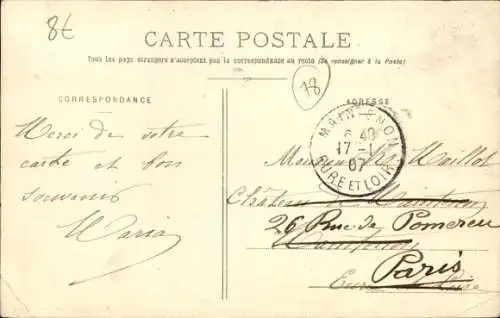 8€
CARTE POSTALE
Tous les pays étrangers n'acceptent pas la correspondance au recto (Se renseigner à la Poste)
18
CORRESPONDANCE
ADRESSE
MAINTENON
6 40
17 - 1
07
EURE ET LOIR
Merci de votre
carte et bon
souvenir
Maria
Monsieur Maillot
Château de Maintenon
26 Rue de Pomereu
Maintenon
Paris
Eure et Loir